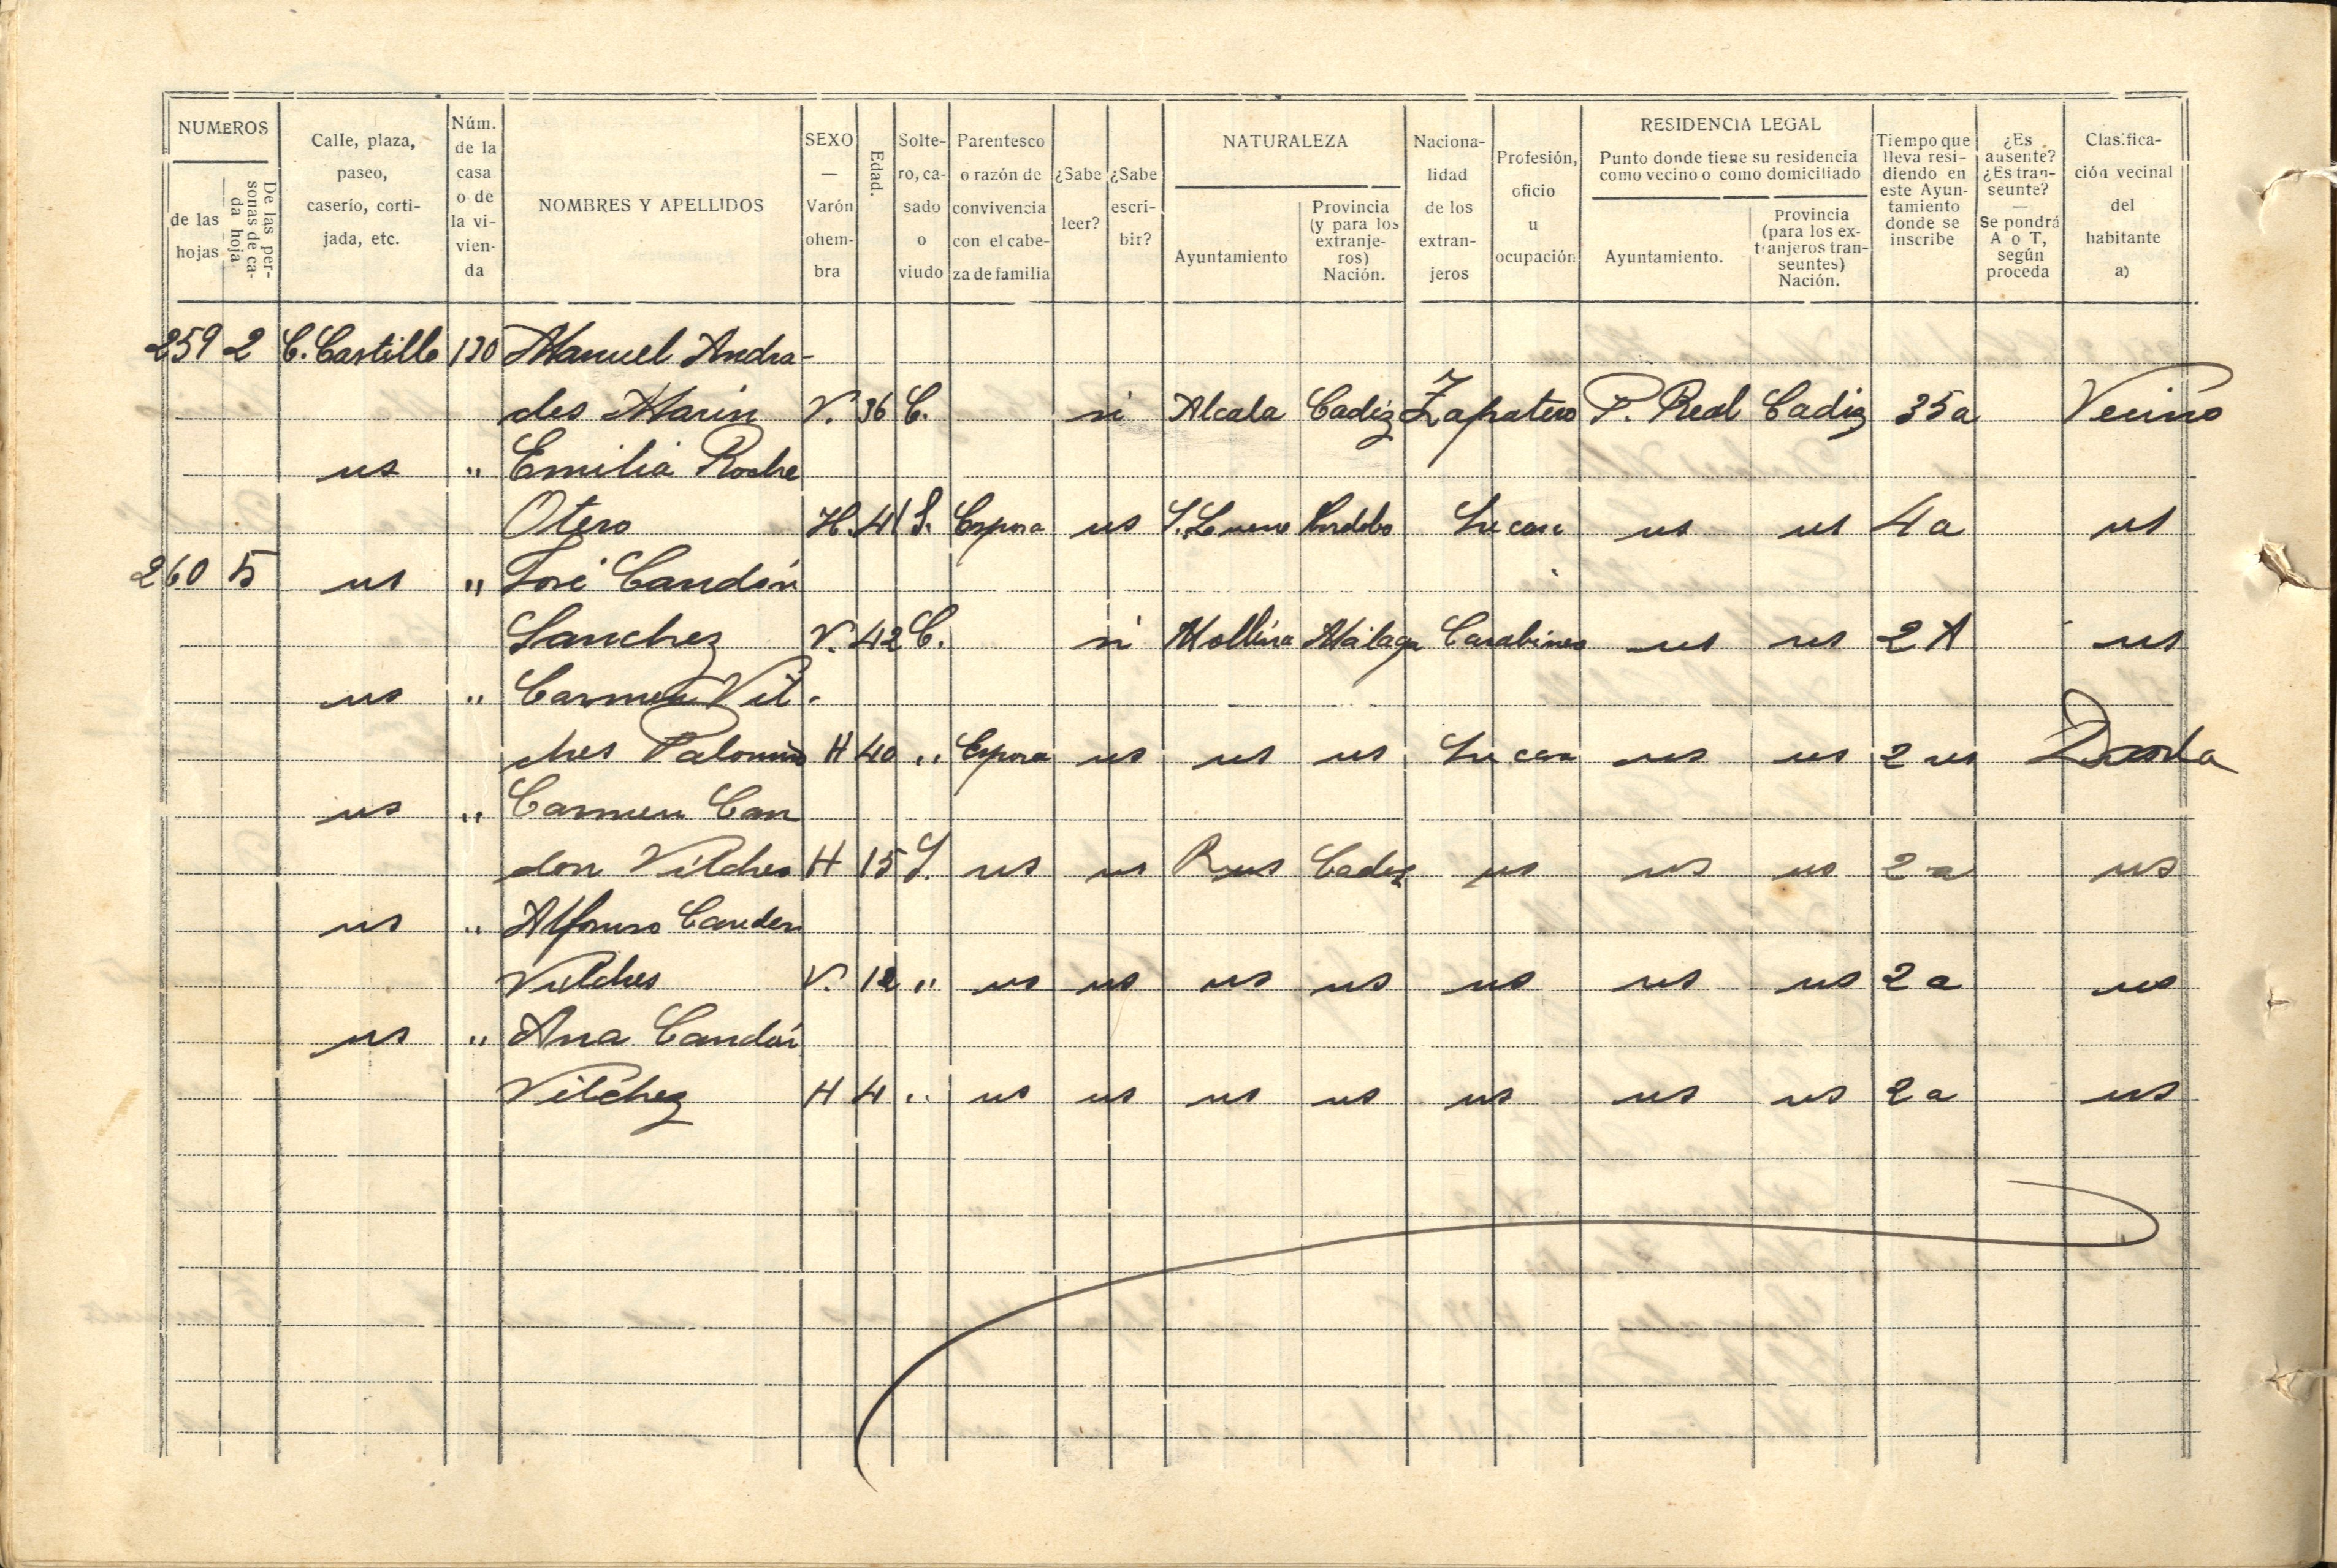 NUMEROS
de las hojas
De las personas de cada hoja
Calle, plaza, paseo, caserío, cortijada, etc.
Núm. de la casa o de la vivienda
NOMBRES Y APELLIDOS
SEXO — Varón o hembra
Edad.
Soltero, casado o viudo
Parentesco o razón de convivencia con el cabeza de familia
¿Sabe leer?
¿Sabe escribir?
NATURALEZA
Ayuntamiento
Provincia (y para los extranjeros) Nación.
Nacionalidad de los extranjeros
Profesión, oficio u ocupación
RESIDENCIA LEGAL
Punto donde tiene su residencia como vecino o como domiciliado
Ayuntamiento.
Provincia (para los extranjeros transeuntes) Nación.
Tiempo que lleva residiendo en este Ayuntamiento donde se inscribe
¿Es ausente? ¿Es transeunte? — Se pondrá A o T, según proceda
Clasificación vecinal del habitante a)
259 2 C. Castillo 130 Manuel Andra-
des Marin V. 36 C. si Alcala Cadiz Zapatero P. Real Cadiz 35 a Vecino
us " Emilia Roche
Otero H. 41 S. Esposa us Su casa us us 4 a us
260 5 us " José Candón
Sanchez V. 42 C. si Mollina Málaga Carabinero us us 2 A us
us " Carmen Vil-
ches Palomino H 40 " Esposa us us us Su casa us us 2 us
us " Carmen Can
don Vilches H 15 S. us us Cadiz us us us 2 a us
us " Alfonso Canden
Vilches V. 12 " us us us us us us us 2 a us
us " Ana Candón
Vilchez H 4 " us us us us us us us 2 a us